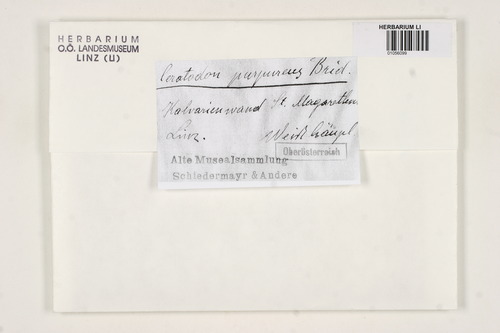 HERBARIUM
O.Ö. LANDESMUSEUM
LINZ (U)
HERBARIUM LI
Ceratodon purpureus Brid.
Kalvarienwand St. Magarethen
Linz.
Oberösterreich
Alte Musealsammlung
Schiedermayr & Andere